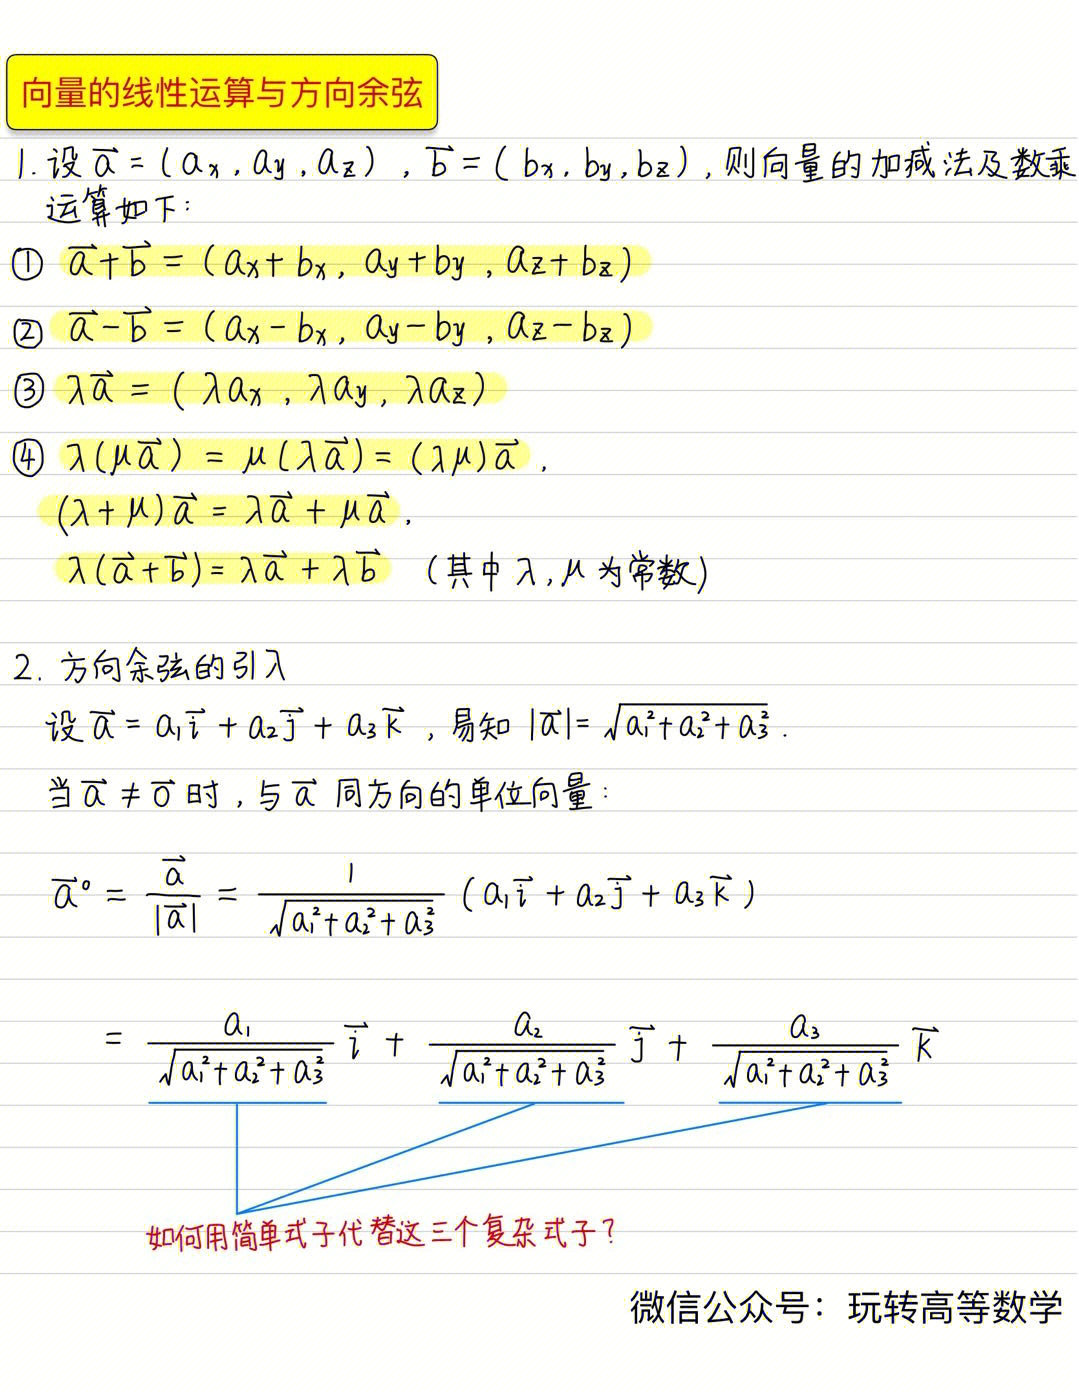 向量的线性运算与方向余弦
1. 设 a⃗ = (aₓ, a_y, a_z), b⃗ = (bₓ, b_y, b_z), 则向量的加减法及数乘
运算如下:
① a⃗+b⃗ = (aₓ+bₓ, a_y+b_y, a_z+b_z)
② a⃗−b⃗ = (aₓ−bₓ, a_y−b_y, a_z−b_z)
③ λa⃗ = (λaₓ, λa_y, λa_z)
④ λ(μa⃗) = μ(λa⃗) = (λμ)a⃗,
(λ+μ)a⃗ = λa⃗ + μa⃗,
λ(a⃗+b⃗) = λa⃗ + λb⃗ (其中 λ, μ 为常数)
2. 方向余弦的引入
设 a⃗ = a₁i⃗ + a₂j⃗ + a₃k⃗, 易知 |a⃗| = √(a₁²+a₂²+a₃²).
当 a⃗ ≠ 0⃗ 时, 与 a⃗ 同方向的单位向量:
a⃗° = a⃗/|a⃗| = 1/√(a₁²+a₂²+a₃²) (a₁i⃗ + a₂j⃗ + a₃k⃗)
= a₁/√(a₁²+a₂²+a₃²) i⃗ + a₂/√(a₁²+a₂²+a₃²) j⃗ + a₃/√(a₁²+a₂²+a₃²) k⃗
如何用简单式子代替这三个复杂式子?
微信公众号：玩转高等数学